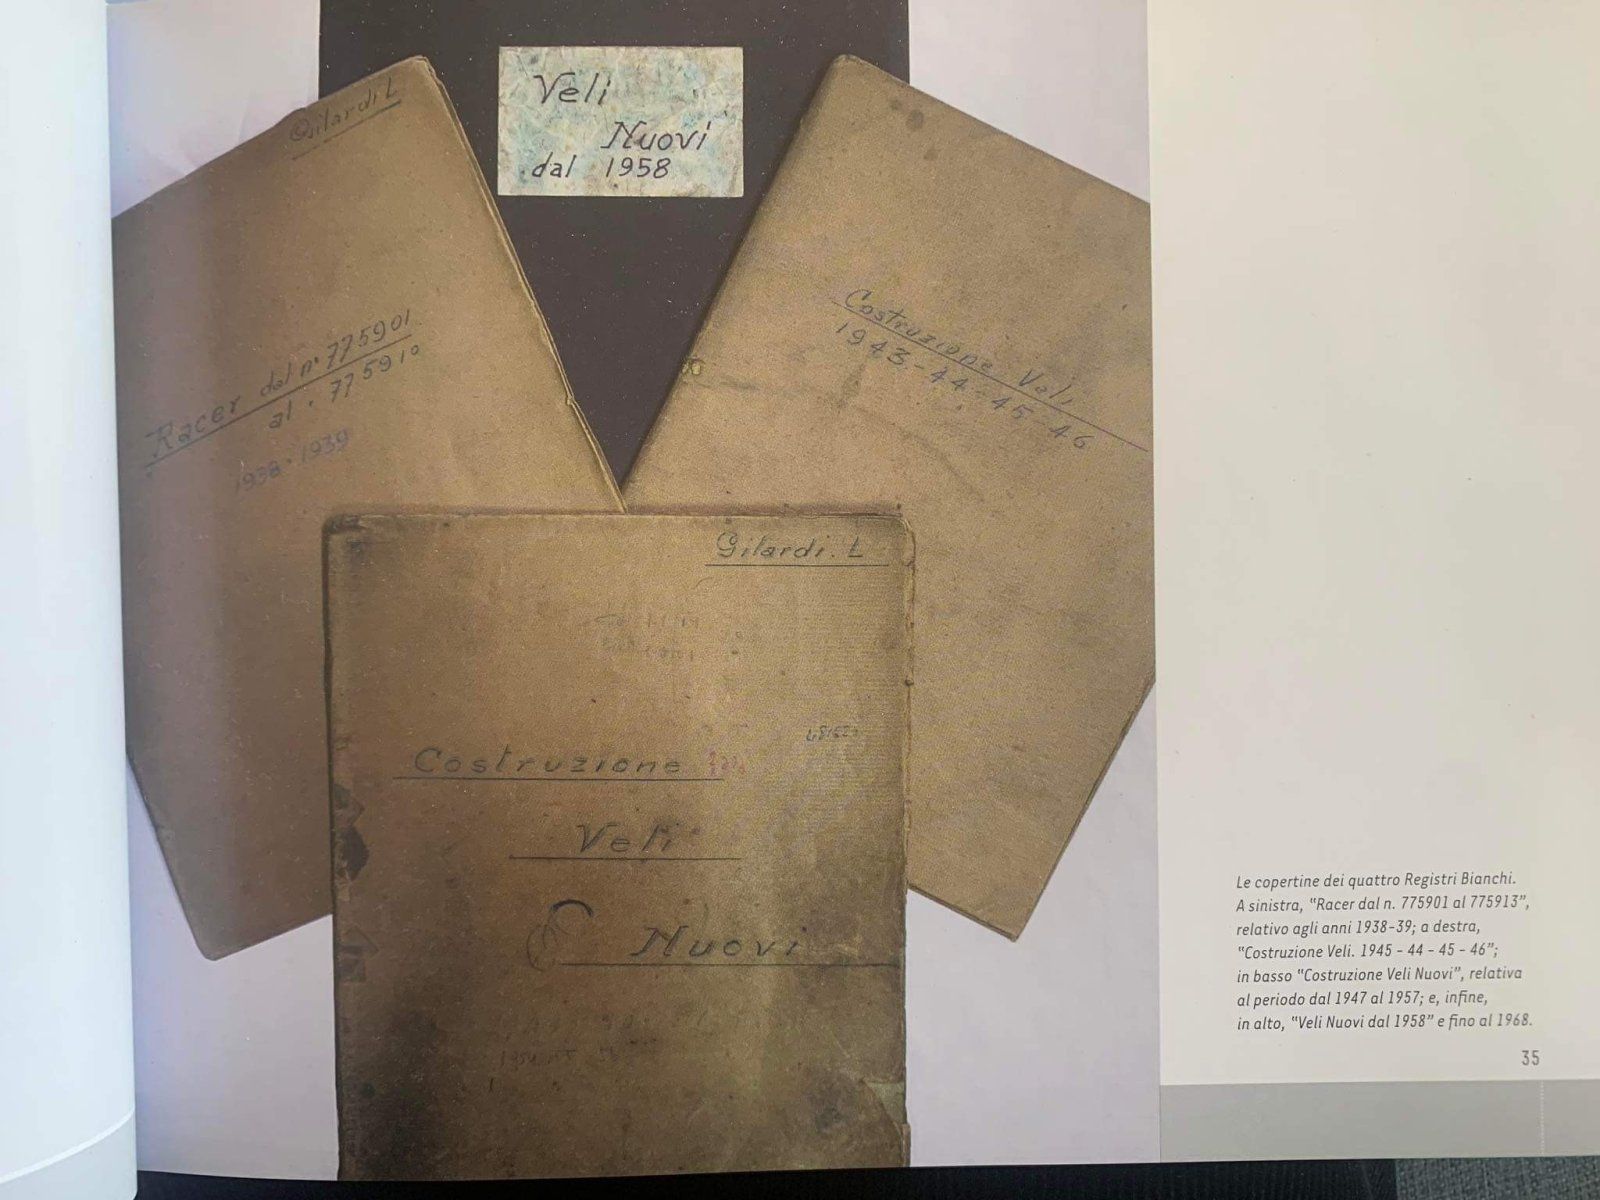 Veli
Nuovi
dal 1958
Gilardi L
Racer dal n° 775901
al . 775910
1938 . 1939
Costruzione Veli
1943-44-45-46
Gilardi. L
Costruzione
Veli
Nuovi
Le copertine dei quattro Registri Bianchi.
A sinistra, “Racer dal n. 775901 al 775913”,
relativo agli anni 1938-39; a destra,
“Costruzione Veli. 1945 - 44 - 45 - 46”;
in basso “Costruzione Veli Nuovi”, relativa
al periodo dal 1947 al 1957; e, infine,
in alto, “Veli Nuovi dal 1958” e fino al 1968.
35